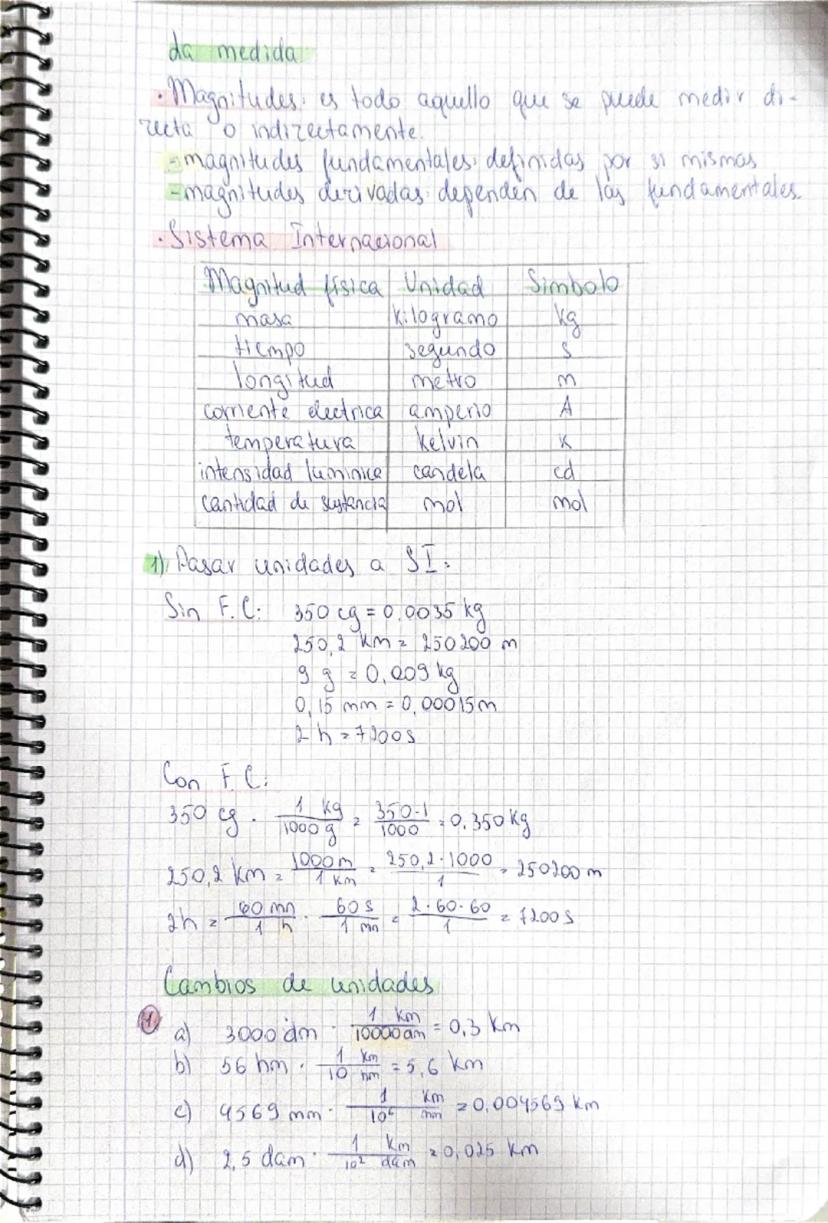 La medida
·Magnitudes: es todo aquello que se puede medir di-
recta o indirectamente.
-magnitudes fundamentales: definidas por si mismas
-magnitudes derivadas: dependen de las fundamentales.
·Sistema Internacional
Magnitud física Unidad Símbolo
masa kilogramo kg
tiempo segundo s
longitud metro m
corriente electrica amperio A
temperatura kelvin K
intensidad luminica candela cd
cantidad de sustancia mol mol
1) Pasar unidades a SI:
Sin F.C: 350 cg = 0,0035 kg
250,2 km = 250200 m
9 g = 0,009 kg
0,15 mm = 0,00015 m
2 h = 7200 s
Con F.C:
350 cg · 1 kg / 1000 g = 350·1 / 1000 = 0,350 kg
250,2 km = 1000 m / 1 km = 250,2·1000 / 1 = 250200 m
2h = 60 mn / 1 h · 60 s / 1 mn = 2·60·60 / 1 = 7200 s
Cambios de unidades
1
a) 3000 dm · 1 km / 10000 dm = 0,3 km
b) 56 hm · 1 km / 10 hm = 5,6 km
c) 4569 mm · 1 km / 10⁶ mm = 0,004569 km
d) 2,5 dam · 1 km / 10² dam = 0,025 km